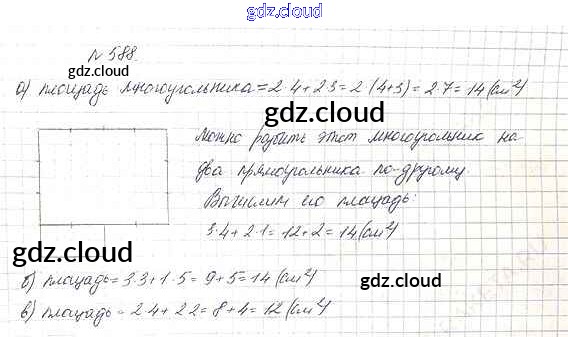 gdz.cloud
№588.
gdz.cloud
а) площадь многоугольника = 2·4+2·3=2·(4+3)=2·7=14 (см²)
gdz.cloud
Можно разбить этот многоугольник на
два прямоугольника по-другому
Вычислим его площадь:
gdz.cloud
3·4+2·1=12+2=14 (см²)
gdz.cloud
б) площадь = 3·3+1·5=9+5=14 (см²)
gdz.cloud
в) площадь = 2·4+2·2=8+4=12 (см²)